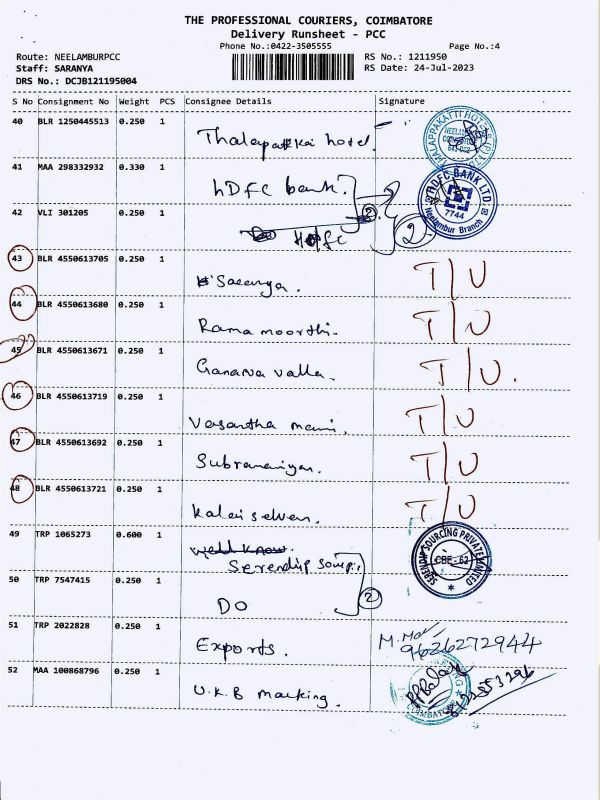 THE PROFESSIONAL COURIERS, COIMBATORE
Delivery Runsheet - PCC
Phone No.:0422-3505555 Page No.:4
Route: NEELAMBURPCC RS No.: 1211950
Staff: SARANYA RS Date: 24-Jul-2023
DRS No.: DCJB121195004
S No Consignment No Weight PCS Consignee Details Signature
40 BLR 1250445513 0.250 1
Thalapakkai hotel.
41 MAA 298332932 0.330 1
hDFC bank. 2
HDFC BANK LTD.
7744
Neelambur Branch
42 VLI 301205 0.250 1
Hdfc 2
43 BLR 4550613705 0.250 1
Saranya. T/U
44 BLR 4550613680 0.250 1
Rama moorthi. T/U
45 BLR 4550613671 0.250 1
Ganarva valla. T/U.
46 BLR 4550613719 0.250 1
Vasantha mani. T/U
47 BLR 4550613692 0.250 1
Subramaniyan. T/U
48 BLR 4550613721 0.250 1
Kalai selvan. T/U
49 TRP 1065273 0.600 1
well know.
Serendip
SERENDIP SOURCING PRIVATE LIMITED
CBE - 62
50 TRP 7547415 0.250 1
DO 2
51 TRP 2022828 0.250 1
Exports. 9626272944
52 MAA 100868796 0.250 1
U.K.B Marking.
COIMBATORE